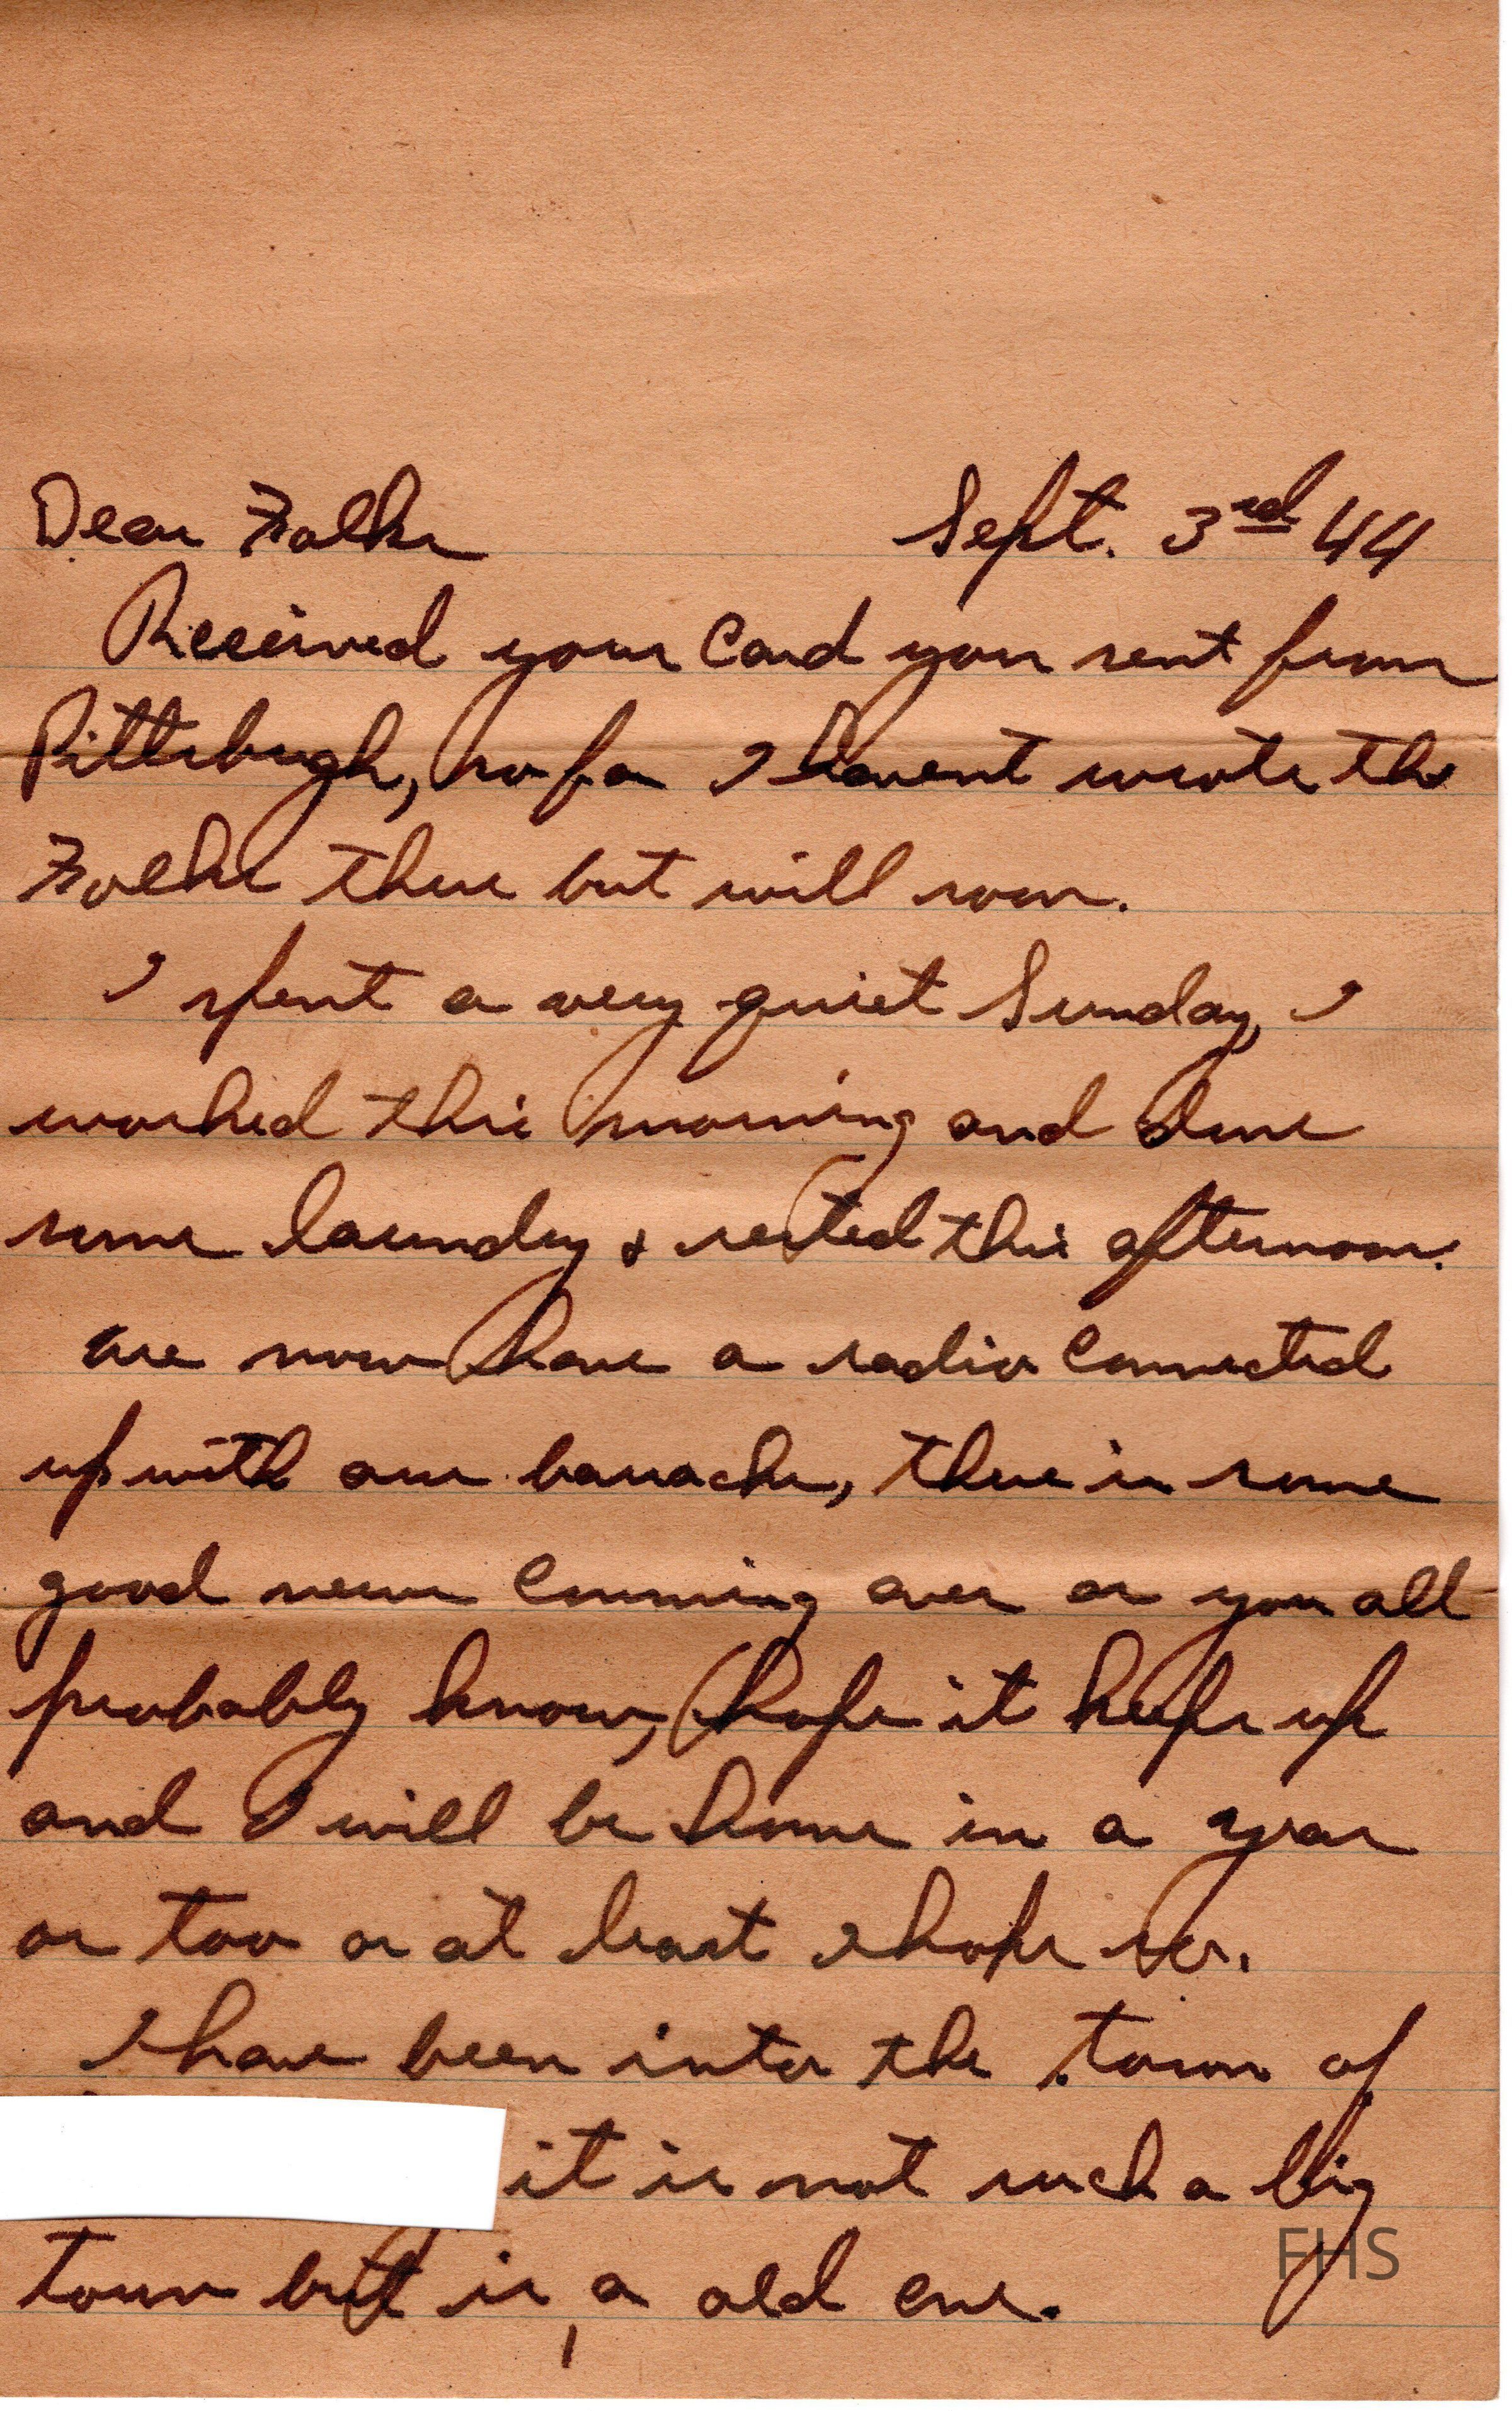 Dear Folks Sept. 3rd 44
Received your Card you sent from
Pittsburgh, so far I havent wrote the
Folks there but will soon.
I spent a very quiet Sunday, I
worked this morning and done
some laundry & rested this afternoon.
We now have a radio connected
up with our barracks, there is some
good news comming over as you all
probably know, hope it keeps up
and I will be home in a year
or too or at least I hope so.
I have been into the town of
it is not such a big
town but is a old one.
FHS